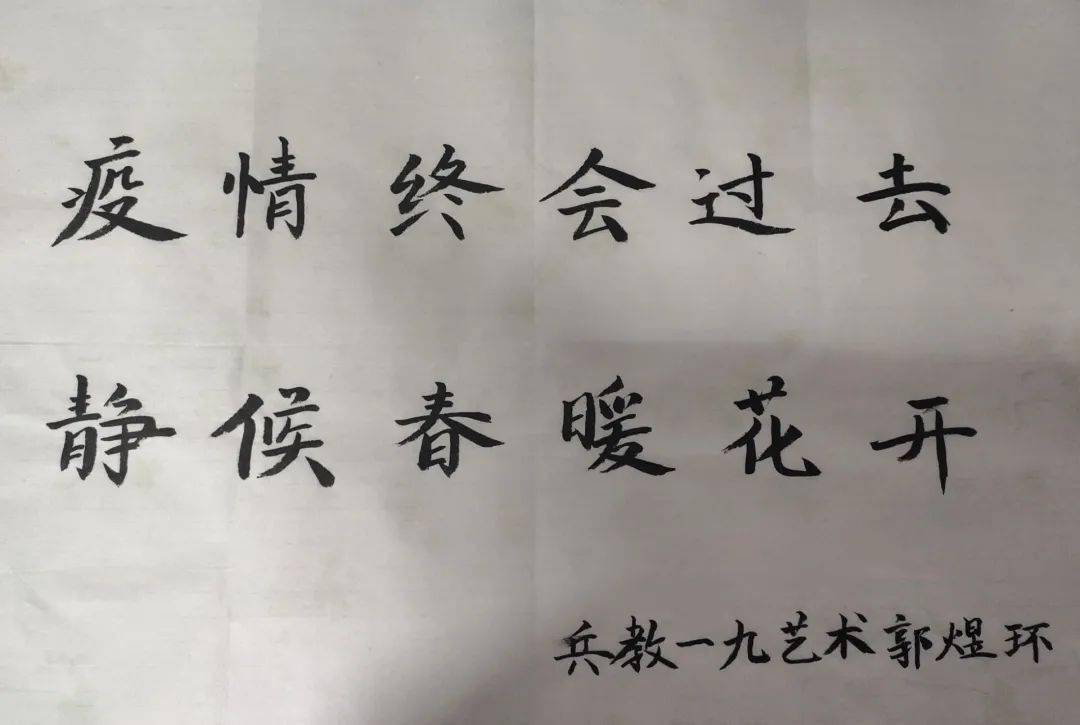 疫情终会过去
静候春暖花开
兵教一九艺术郭煜环